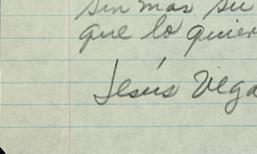 sin mas su
que lo quier
Jesús Vega